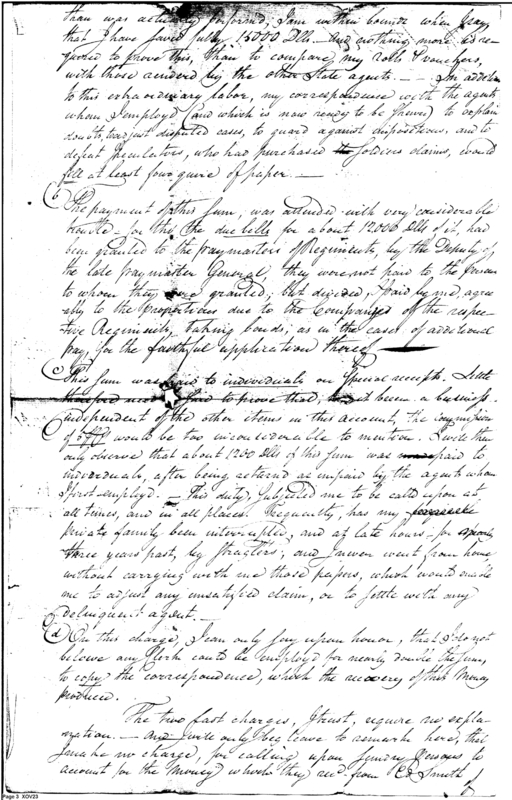 than was actually performed, I am within bounds when I say,
that I have saved fully 15000 Dlls. And nothing more is re-
quired to prove this, than to compare my rolls & vouchers,
with those rendered by the other State agents. — In addition
to this extraordinary labor, my correspondence with the agents
whom I employd (and which is now ready to be shewed) to explain
doubts, adjust disputed cases, to guard against impositions, and to
defeat Speculators, who had purchased Soldiers claims, would
fill at least four quire of paper. —
(b) The payment of this Sum, was attended with very considerable
trouble - for the due bills for about 12000 Dlls of it, had
been granted to the Paymasters of Regiments, by the Deputy of
the late Paymaster General, they were not paid to the person
to whom they were granted; but divided, & paid by me, agree
ably to the proportions due to the Companies of the respec-
tive Regiments, taking bonds; as in the case of additional
pay, for the faithful application thereof —
(c) This Sum was paid to individuals on Special receipts. Little
need be said to prove that, it been a business
independent of the other items in this account, the commission
of would be too inconsiderable to mention. I will then
only observe that about 1200 Dlls of this Sum was paid to
individuals, after being returnd as unpaid by the agents whom
I first employd. — This duty, Subjected me to be called upon at
all times, and in all places. Frequently, has my
private family been interrupted, and at late hours - for nearly
three years past, by Straglers; and I never went from home
without carrying with me those papers, which would enable
me to adjust any unsatisfied claim, or to Settle with any
delinquent agent. —
(d) On this charge, I can only Say upon honor, that I do not
believe any Clerk could be employd for nearly double the Sum,
to copy the correspondence, which the recovery of this Money
produced.
The two last charges, I trust, require no expla-
nation. — And will only beg leave to remark here, that
I make no charge, for calling upon Sundry Persons to
account for the Money which they recd. from Smith
of
Page 3 XOV23